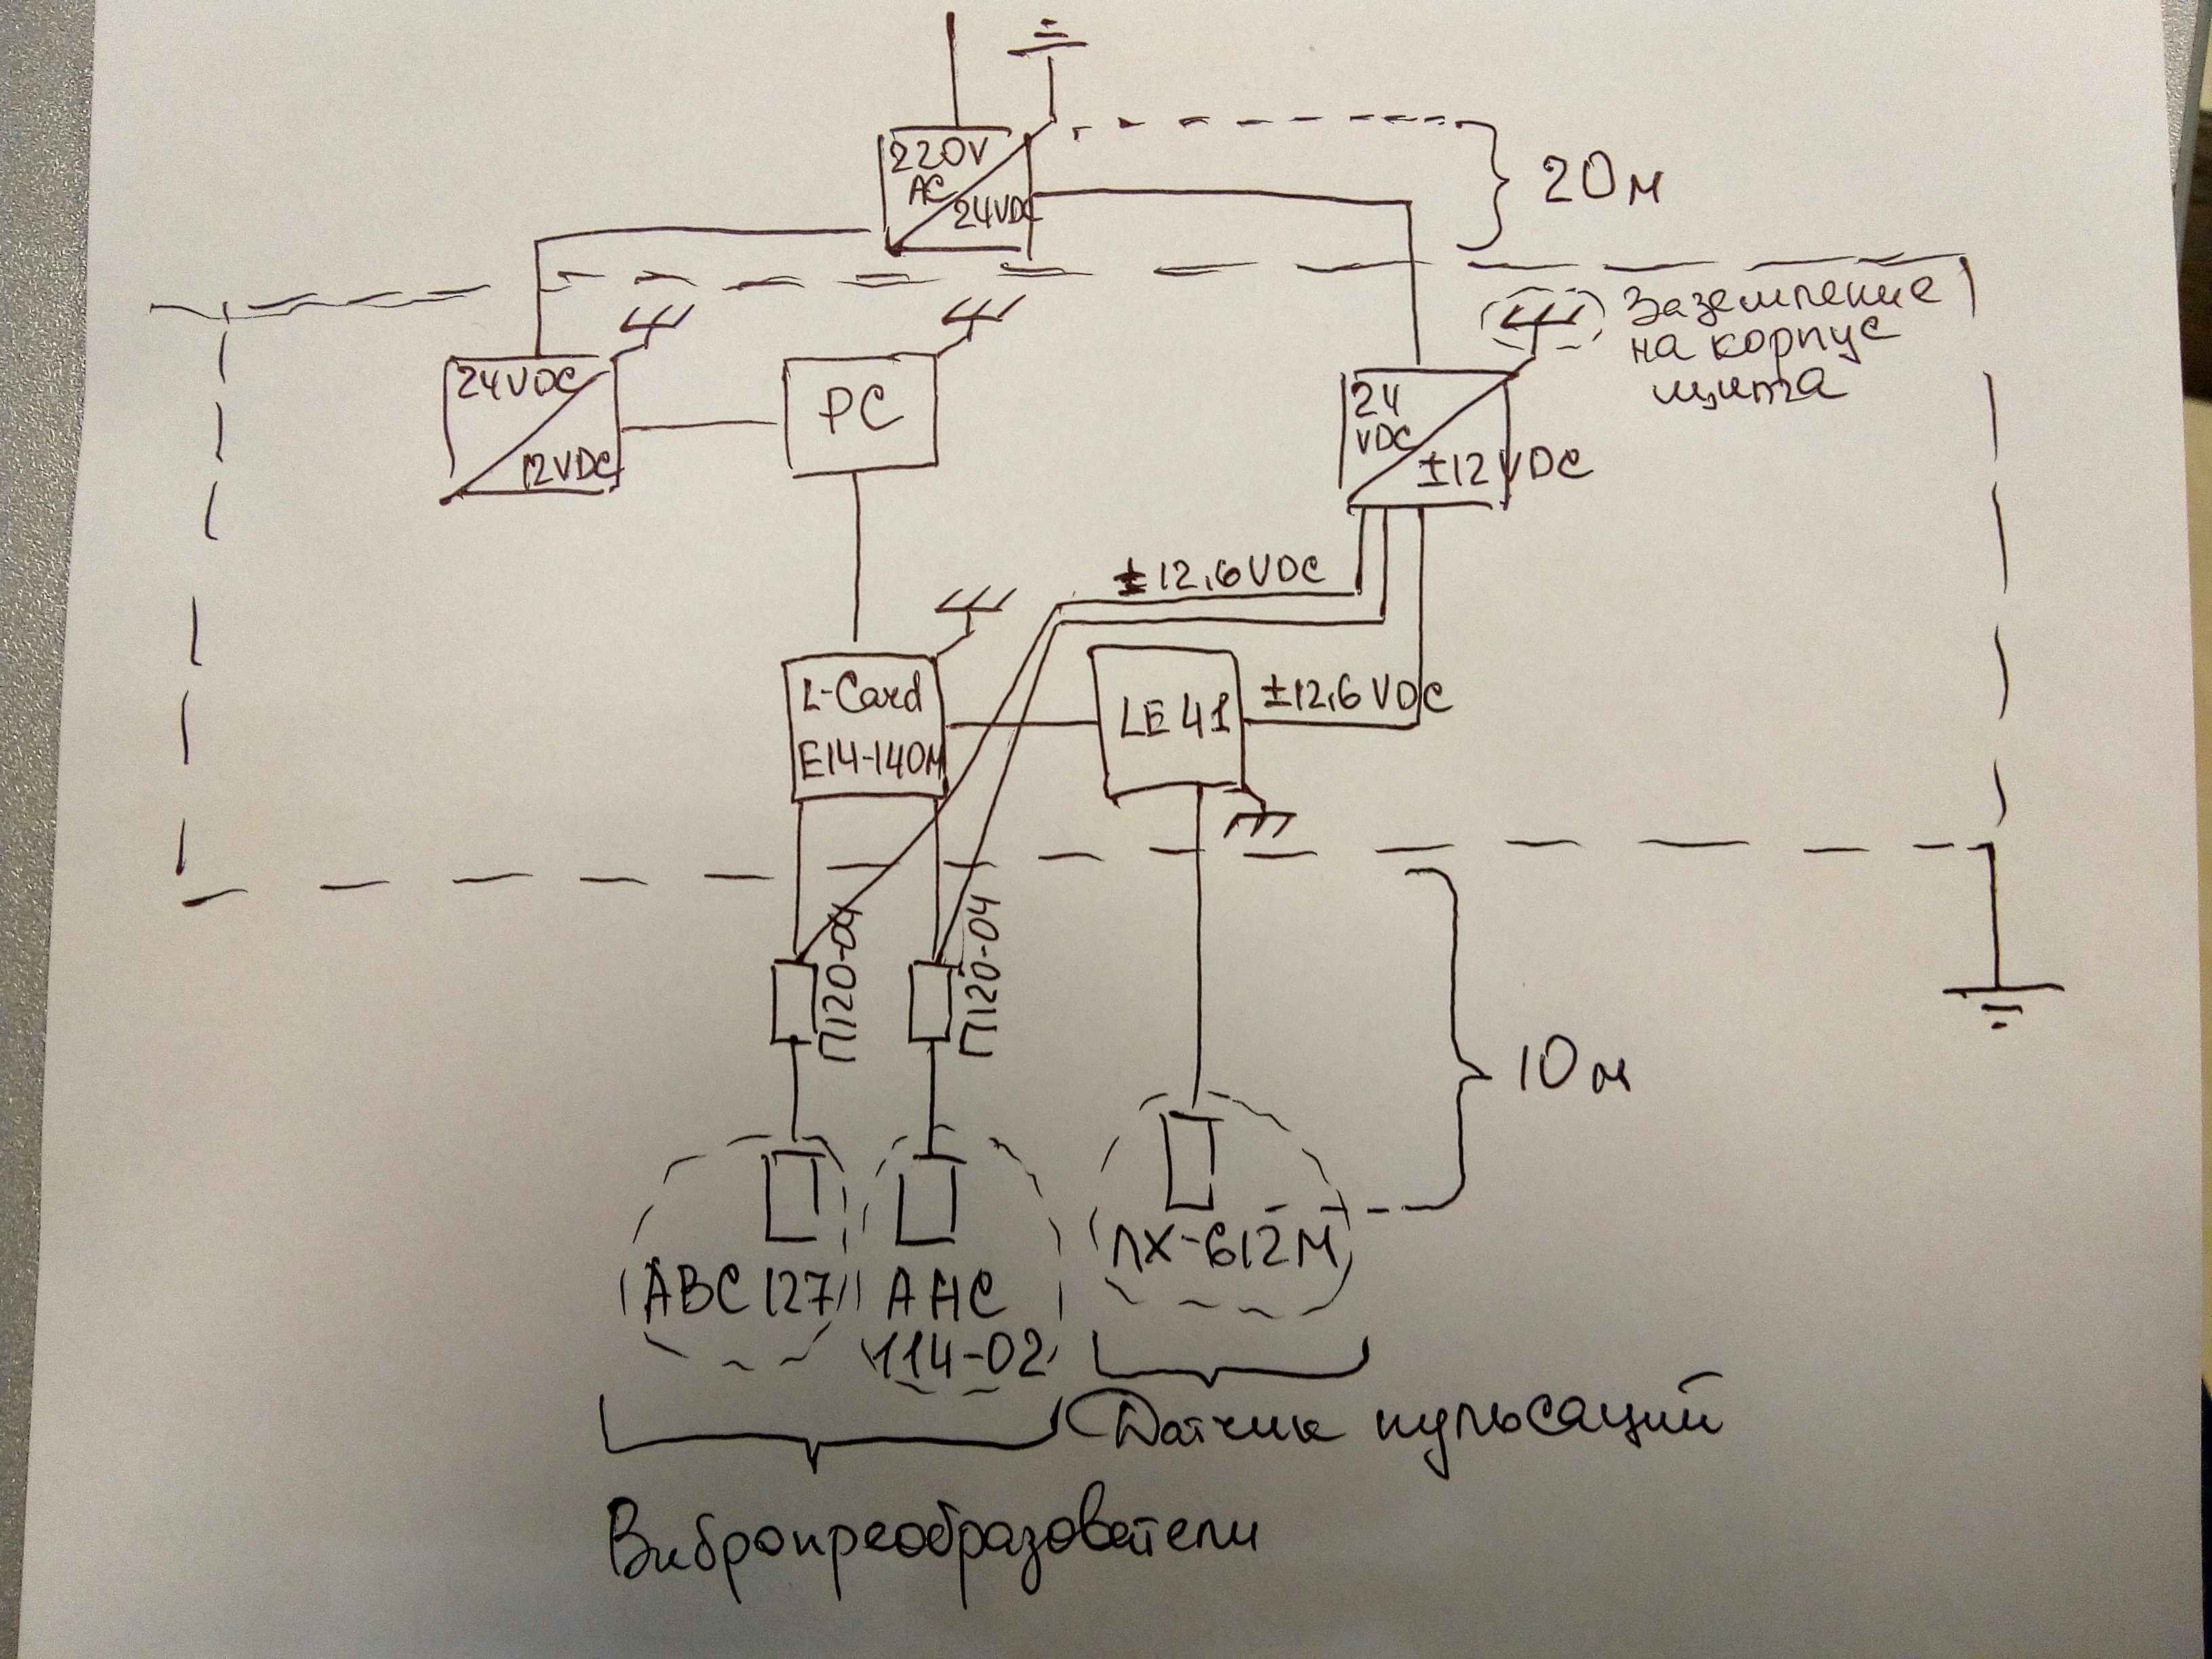 220V
AC
24VDC
20м
Заземление
на корпус
щита
24VDC
12VDC
PC
24
VDC
±12VDC
±12,6VDC
L-Card
E14-140M
LE41
±12,6VDC
П120-04
П120-04
10м
АВС127
АНС
114-02
ЛХ-612М
Датчик пульсаций
Вибропреобразователи